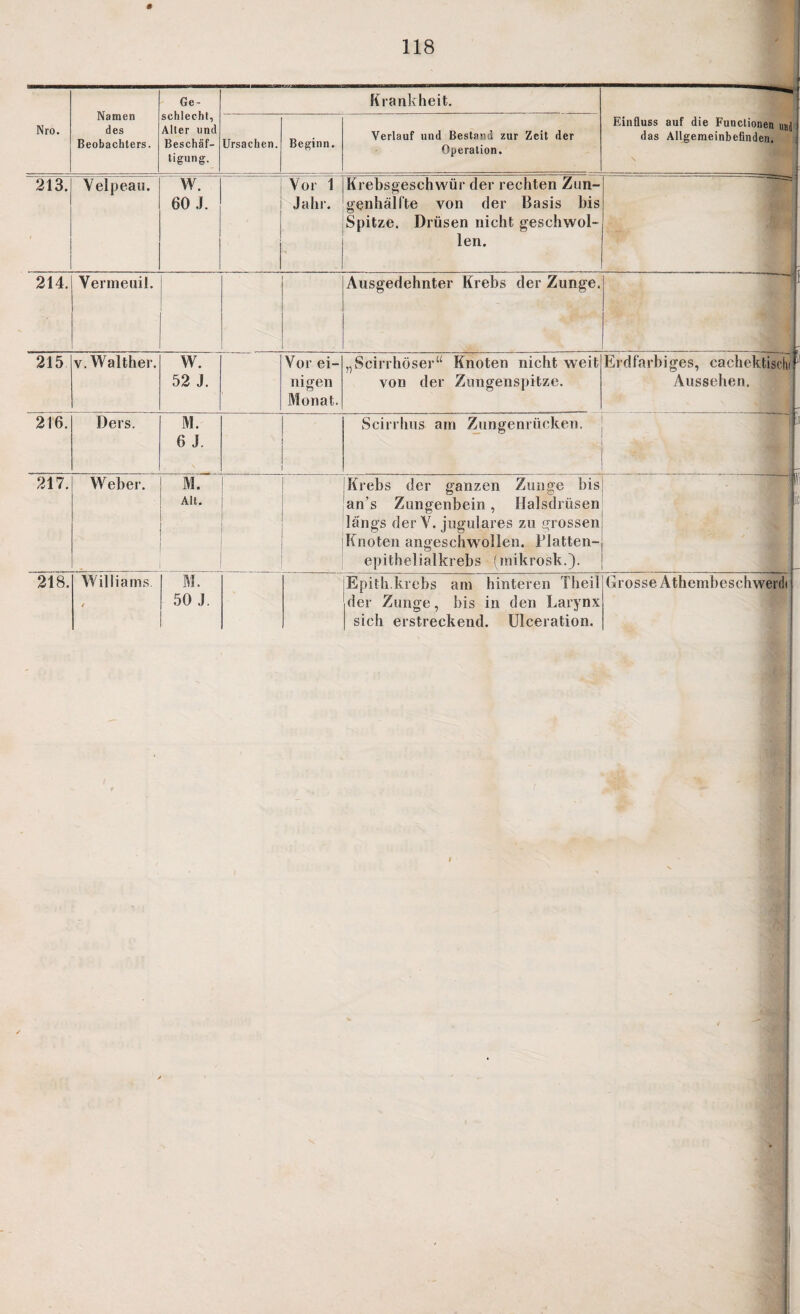 118
Nro.
Namen
des
Beobachters.
Ge-
schlecht,
Alter und
Beschäf-
tigung.
Krankheit.
Ursachen.
Beginn.
Verlauf und Bestand zur Zeit der
Operation.
Einfluss auf die Functionen und
das Allgemeinbefinden.
213.
Velpeau.
W.
60 J.
Vor 1
Jahr.
Krebsgeschwür der rechten Zun-
genhälfte von der Basis bis
Spitze. Drüsen nicht geschwol-
len.
214.
Vermeuil.
Ausgedehnter Krebs der Zunge.
215
v. Walther.
W.
52 J.
Vor ei-
nigen
Monat.
„Scirrhöser“ Knoten nicht weit
von der Zungenspitze.
Erdfarbiges, cachektisch
Aussehen.
216.
Ders.
M.
6 J.
Scirrhus am Zungenrücken.
217.
Weber.
M.
Alt.
Krebs der ganzen Zunge bis
an's Zungenbein, Halsdrüsen
längs der V. jugulares zu grossen
Knoten angeschwollen. Platten-
epithelialkrebs (mikrosk.).
218.
Williams.
M.
50 J.
Epith.krebs am hinteren Theil
der Zunge, bis in den Larynx
sich erstreckend. Ulceration.
Grosse Athembeschwerde